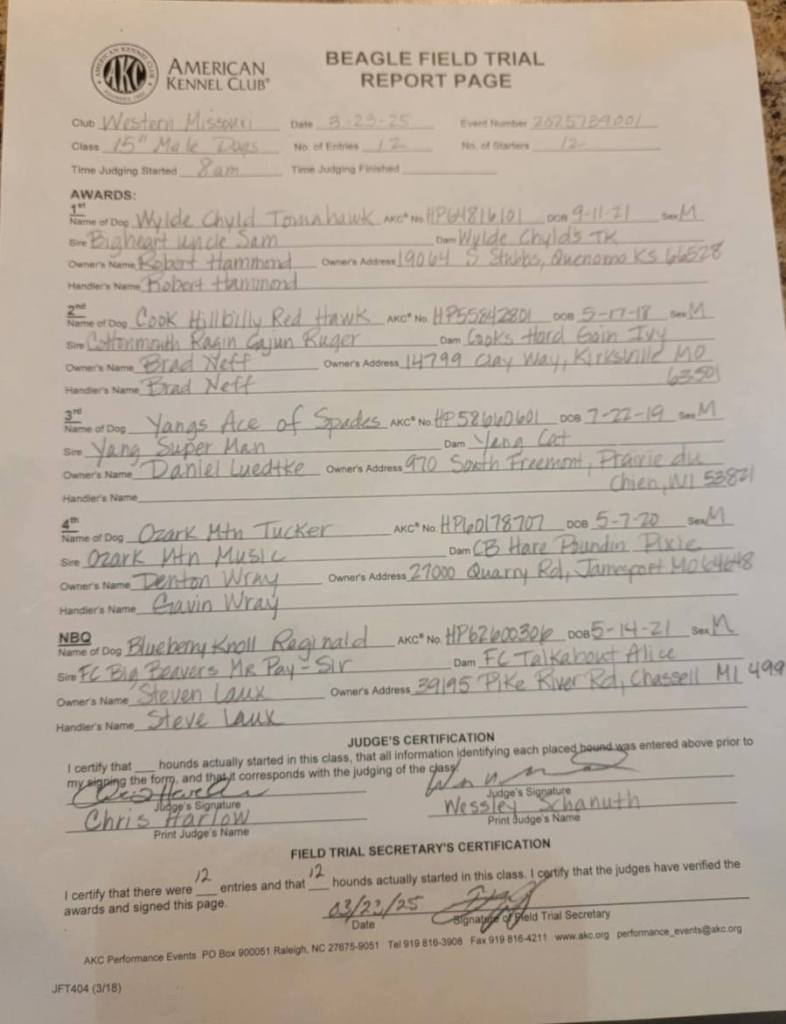 AMERICAN KENNEL CLUB
AKC
FOUNDED 1884
AMERICAN
KENNEL CLUB®
BEAGLE FIELD TRIAL
REPORT PAGE
Club Western Missouri Date 3-23-25 Event Number 2025739001
Class 15" Male Dogs No. of Entries 12 No. of Starters 12
Time Judging Started 8am Time Judging Finished
AWARDS:
1st
Name of Dog Wylde Chyld Tomahawk AKC® No. HP64816101 DOB 9-11-21 Sex M
Sire Bigheart Uncle Sam Dam Wylde Chylds TK
Owner's Name Robert Hammond Owner's Address 19064 S Stubbs, Quenemo KS 66528
Handler's Name Robert Hammond
2nd
Name of Dog Cook Hillbilly Red Hawk AKC® No. HP55842801 DOB 5-17-18 Sex M
Sire Cottonmouth Ragin Cajun Ruger Dam Cooks Hard Goin Ivy
Owner's Name Brad Neff Owner's Address 14799 Clay Way, Kirksville MO
Handler's Name Brad Neff 63501
3rd
Name of Dog Yangs Ace of Spades AKC® No. HP58660601 DOB 7-22-19 Sex M
Sire Yang Super Man Dam Yang Cat
Owner's Name Daniel Luedtke Owner's Address 970 South Freemont, Prairie du
Handler's Name Chien, WI 53821
4th
Name of Dog Ozark Mtn Tucker AKC® No. HP60178707 DOB 5-7-20 Sex M
Sire Ozark Mtn Music Dam CB Hare Poundin Pixie
Owner's Name Denton Wray Owner's Address 27000 Quarry Rd, Jamesport MO 64648
Handler's Name Gavin Wray
NBQ
Name of Dog Blueberry Knoll Reginald AKC® No. HP62600306 DOB 5-14-21 Sex M
Sire FC Big Beavers Mr Pay-Sir Dam FC Talkabout Alice
Owner's Name Steven Laux Owner's Address 39195 Pike River Rd, Chassell MI 499
Handler's Name Steve Laux
JUDGE'S CERTIFICATION
I certify that ___ hounds actually started in this class, that all information identifying each placed hound was entered above prior to
my signing the form, and that it corresponds with the judging of the class.
Judge's Signature Judge's Signature
Chris Harlow Wessley Schanuth
Print Judge's Name Print Judge's Name
FIELD TRIAL SECRETARY'S CERTIFICATION
I certify that there were 12 entries and that 12 hounds actually started in this class. I certify that the judges have verified the
awards and signed this page.
03/23/25
Date Signature of Field Trial Secretary
AKC Performance Events PO Box 900051 Raleigh, NC 27675-9051 Tel 919 816-3908 Fax 919 816-4211 www.akc.org performance_events@akc.org
JFT404 (3/18)